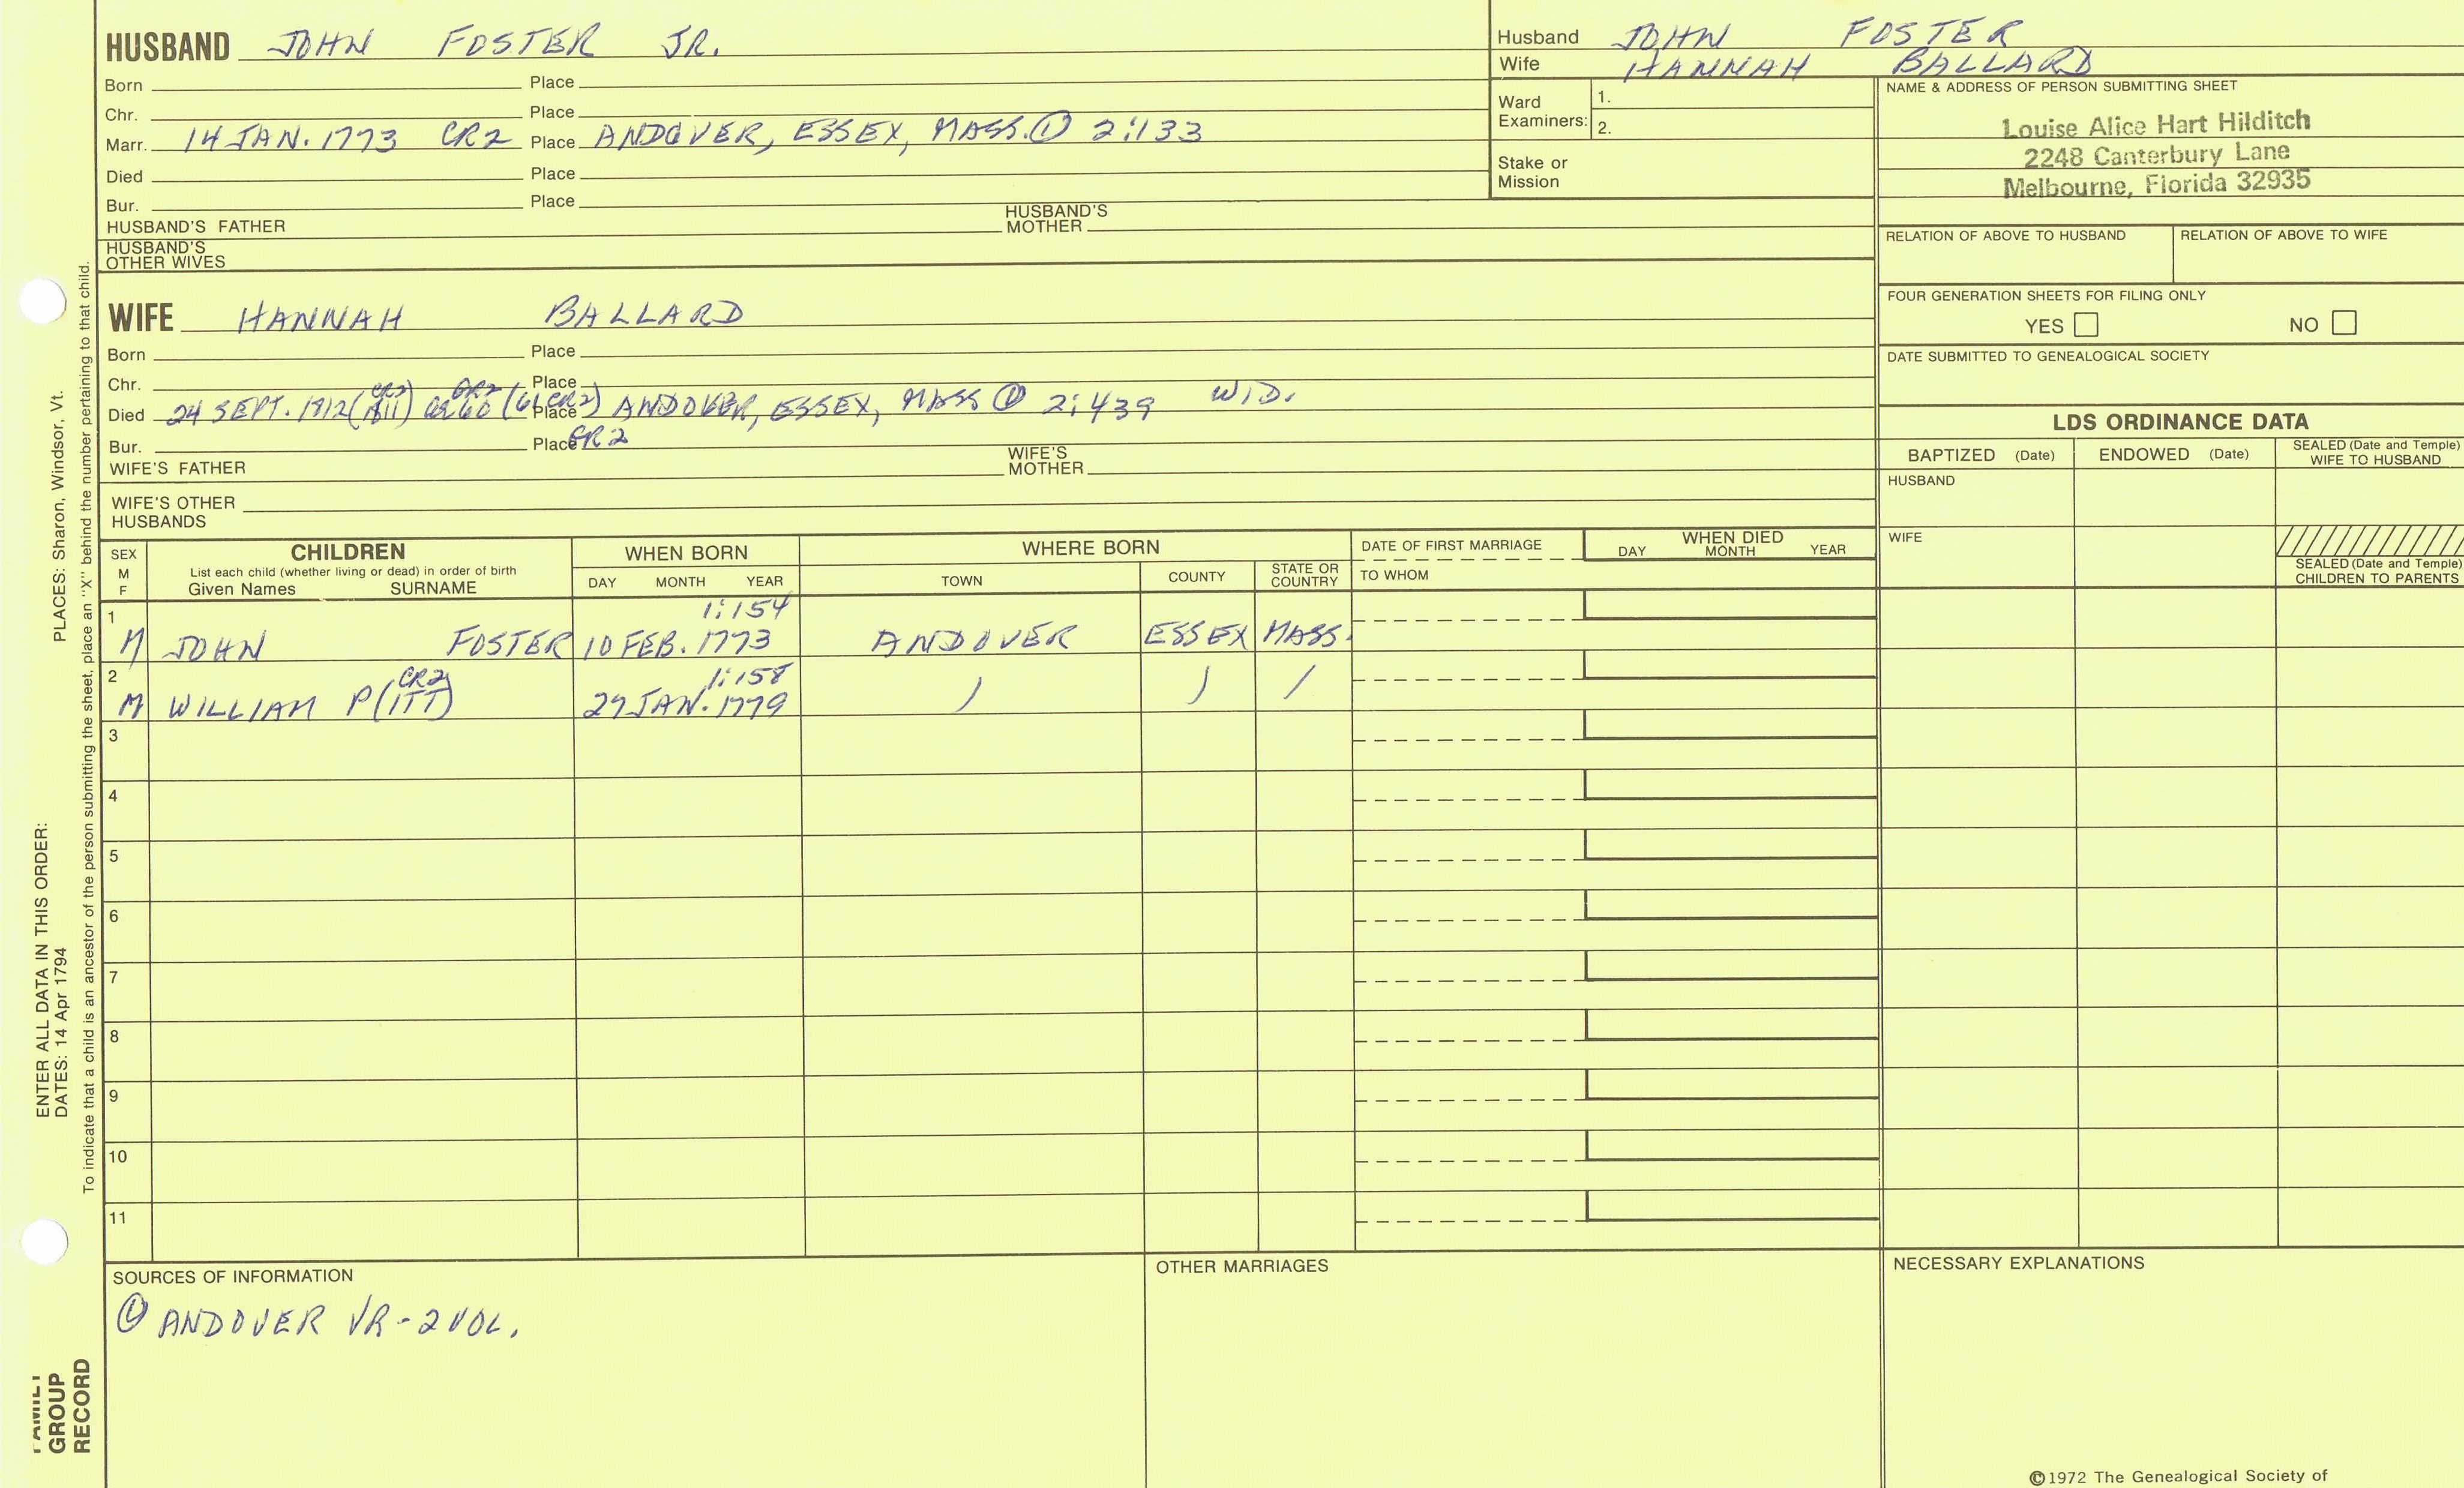 HUSBAND JOHN FOSTER JR.
Born Place
Chr. Place
Marr. 14 JAN. 1773 CR2 Place ANDOVER, ESSEX, MASS. ① 2:133
Died Place
Bur. Place
HUSBAND'S FATHER HUSBAND'S MOTHER
HUSBAND'S OTHER WIVES
Husband JOHN FOSTER
Wife HANNAH BALLARD
Ward Examiners: 1.
2.
Stake or Mission
NAME & ADDRESS OF PERSON SUBMITTING SHEET
Louise Alice Hart Hilditch
2248 Canterbury Lane
Melbourne, Florida 32935
RELATION OF ABOVE TO HUSBAND RELATION OF ABOVE TO WIFE
FOUR GENERATION SHEETS FOR FILING ONLY
YES NO
DATE SUBMITTED TO GENEALOGICAL SOCIETY
WIFE HANNAH BALLARD
Born Place
Chr. Place
CR2 GR2
Died 24 SEPT. (61, CR2) Place ANDOVER, ESSEX, MASS ① 2:439 WID.
Bur. Place GR2
WIFE'S FATHER WIFE'S MOTHER
WIFE'S OTHER HUSBANDS
LDS ORDINANCE DATA
BAPTIZED (Date) ENDOWED (Date) SEALED (Date and Temple) WIFE TO HUSBAND
HUSBAND
WIFE
SEALED (Date and Temple) CHILDREN TO PARENTS
SEX M F
CHILDREN
List each child (whether living or dead) in order of birth
Given Names SURNAME
WHEN BORN
DAY MONTH YEAR
WHERE BORN
TOWN COUNTY STATE OR COUNTRY
DATE OF FIRST MARRIAGE
TO WHOM
WHEN DIED
DAY MONTH YEAR
1 1:154
M JOHN FOSTER 10 FEB. 1773 ANDOVER ESSEX MASS.
2 CR2 1:158
M WILLIAM P(ITT) 27 JAN. 1779 ) ) /
3
4
5
6
7
8
9
10
11
SOURCES OF INFORMATION
① ANDOVER VR - 2 VOL.
OTHER MARRIAGES
NECESSARY EXPLANATIONS
©1972 The Genealogical Society of
ENTER ALL DATA IN THIS ORDER:
DATES: 14 Apr 1794
PLACES: Sharon, Windsor, Vt.
To indicate that a child is an ancestor of the person submitting the sheet, place an "X" behind the number pertaining to that child.
FAMILY
GROUP
RECORD